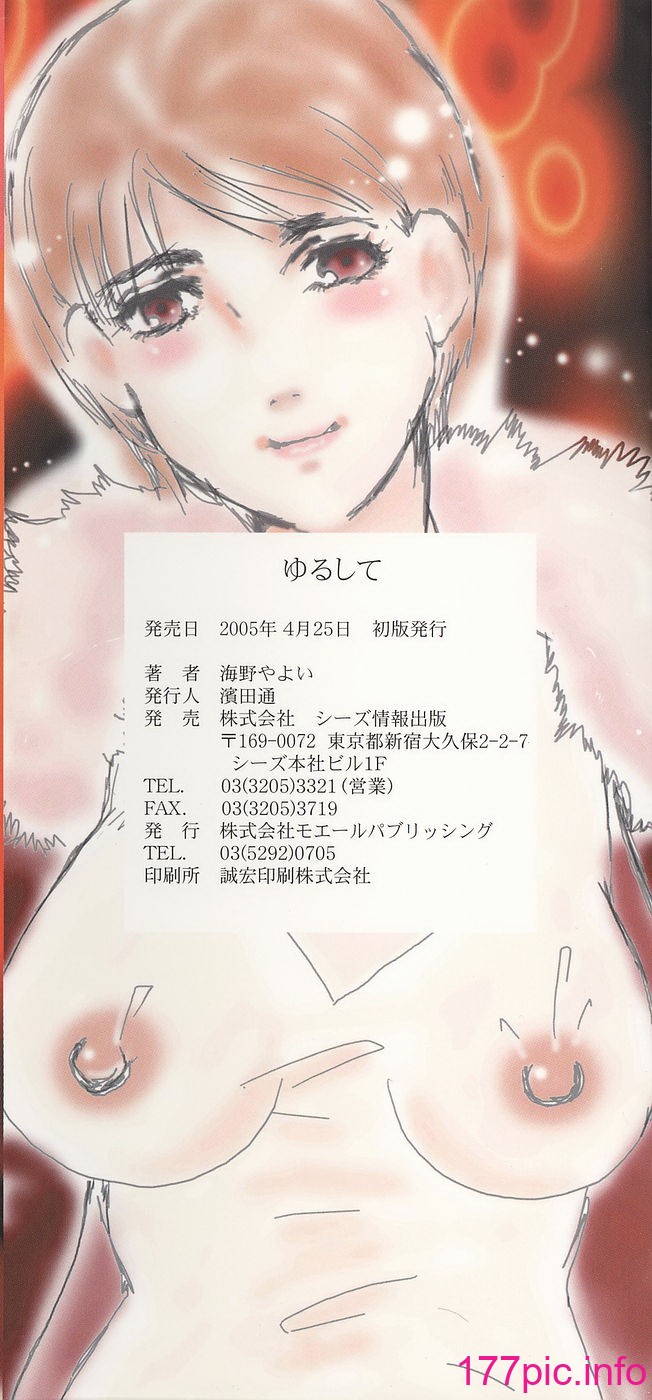 ゆるして
発売日 2005年 4月25日 初版発行
著 者 海野やよい
発行人 濱田通
発 売 株式会社 シーズ情報出版
〒169-0072 東京都新宿大久保2-2-7
シーズ本社ビル1F
TEL. 03(3205)3321(営業)
FAX. 03(3205)3719
発 行 株式会社モエールパブリッシング
TEL. 03(5292)0705
印刷所 誠宏印刷株式会社
177pic.info